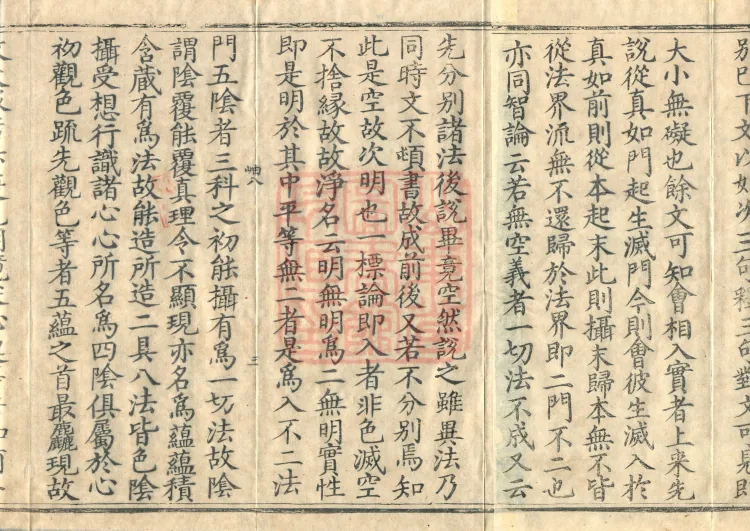 大小無礙也餘文可知會相入實者上來先
說從真如門起生滅門今則會彼生滅入於
真如前則從本起末此則攝末歸本無不皆
從法界流無不還歸於法界即二門不二也
亦同智論云若無空義者一切法不成又云
先分別諸法後說畢竟空然說之雖異法乃
同時文不頓書故成前後又若不分別焉知
此是空故次明也一標論即入者非色滅空
不捨緣故故淨名云明無明為二無明實性
即是明於其中平等無二者是為入不二法
岫八
三
門五陰者三科之初能攝有為一切法故陰
謂陰覆能覆真理令不顯現亦名為蘊蘊積
含藏有為法故能造所造二具八法皆色陰
攝受想行識諸心心所名為四陰俱屬於心
初觀色䟽先觀色等者五蘊之首最麤現故